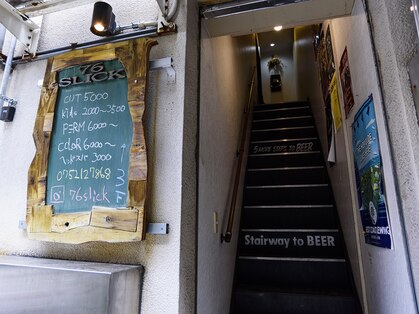 76
SLICK
CUT 5000
Kids 2000~3500
PERM 6000~
COLOR 6000~
ヘッドスパ 3000
0752127868
76slick
4F
5 MORE STEPS to BEER
Stairway to BEER